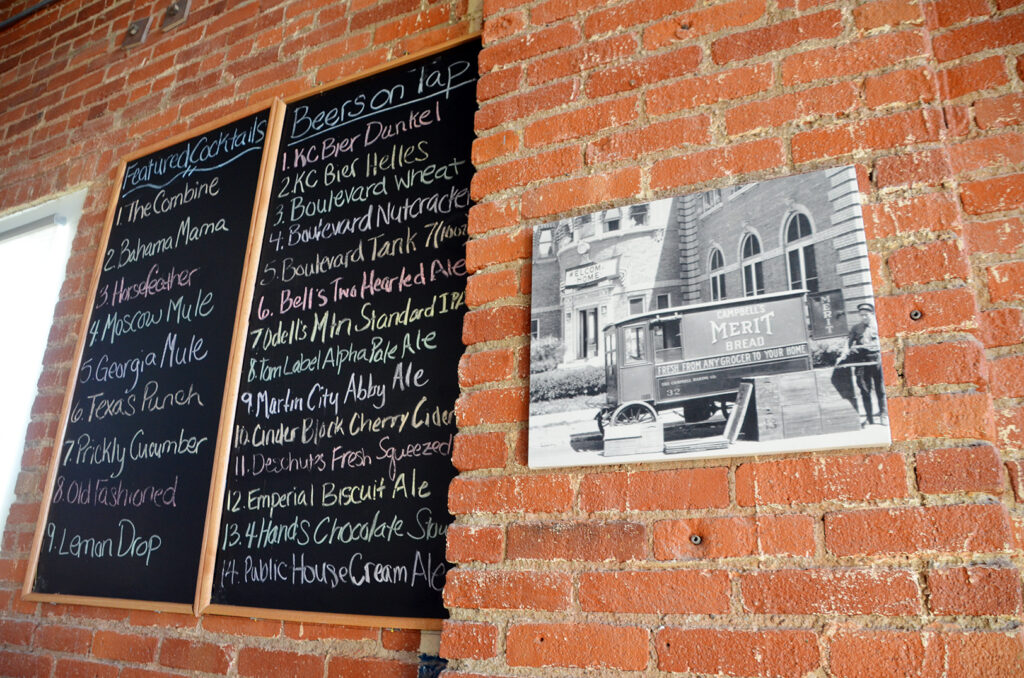 Featured Cocktails
1. The Combine
2. Bahama Mama
3. Horsefeather
4. Moscow Mule
5. Georgia Mule
6. Texas Punch
7. Prickly Cucumber
8. Old Fashioned
9. Lemon Drop
Beers on Tap
1. KC Bier Dunkel
2. KC Bier Helles
3. Boulevard Wheat
4. Boulevard Nutcracker
5. Boulevard Tank 7
6. Bell's Two Hearted Ale
7. Odell's Mtn Standard IPA
8. Tom Label Alpha Pale Ale
9. Martin City Abby Ale
10. Cinder Block Cherry Cider
11. Deschuts Fresh Squeezed
12. Emperial Biscuit Ale
13. 4 Hands Chocolate Stou
14. Public House Cream Ale
WELCOME
HOME
CAMPBELL'S
MERIT
BREAD
FRESH FROM ANY GROCER TO YOUR HOME
THE CAMPBELL BAKING CO.
32